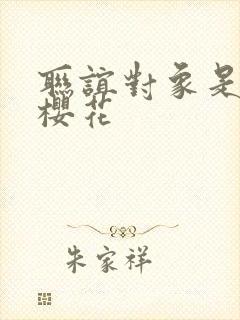 聯誼對象是
櫻花
朱家祥